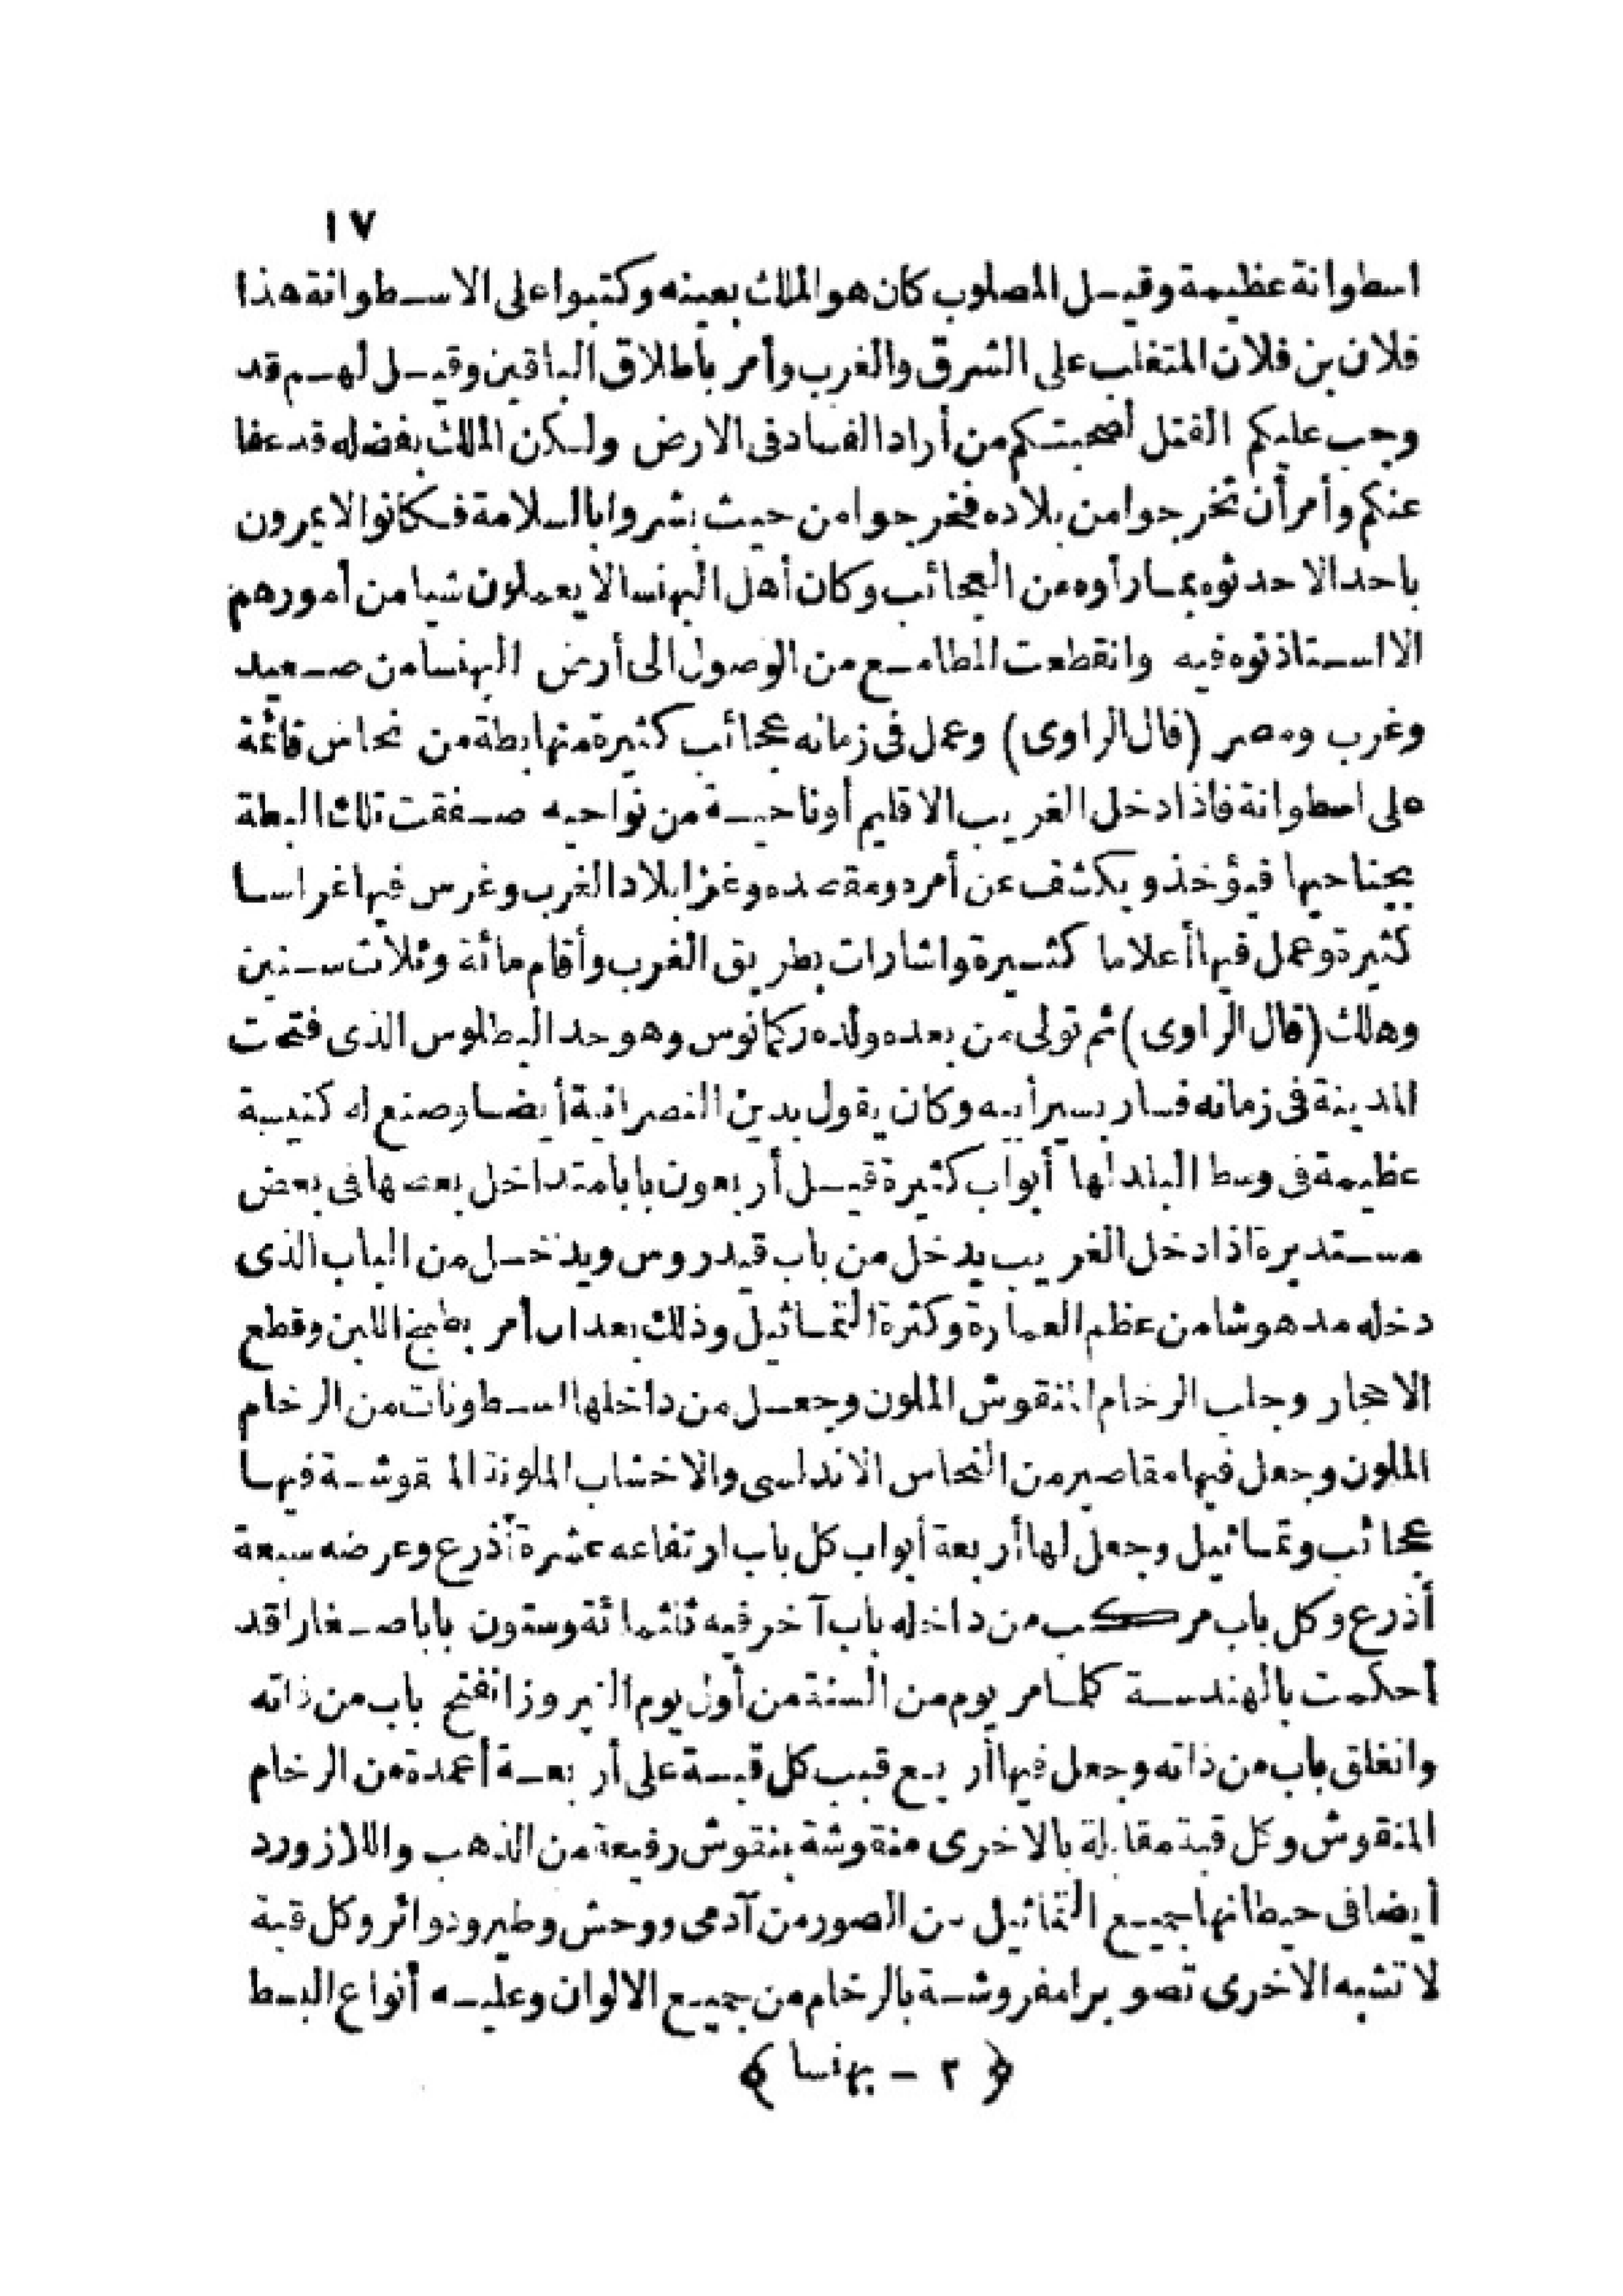 ١٧
اسطوانة عظيمة وقيل المصلوب كان هو الملك بعينه وكتبوا على الاسطوانة هذا
فلان بن فلان المتغلب على الشرق والغرب وأمر باطلاق الباقين وقيل لهم قد
وجب عليكم القتل لصحبتكم من أراد الفساد فى الارض ولكن الملك بفضله قد عفا
عنكم وأمر أن تخرجوا من بلاده فخرجوا من حيث بشروا بالسلامة فكانوا لا يمرون
باحد الا حدثوه بما رأوه من العجائب وكان أهل البهنسا لا يعملون شيا من أمورهم
الا استاذنوه فيه وانقطعت المطامع من الوصول الى أرض البهنسا من صعيد
وغرب ومصر (قال الراوى) وعمل فى زمانه عجائب كثيرة منها بطة من نحاس قائمة
على اسطوانة فاذا دخل الغريب الاقليم أو ناحية من نواحيه صفقت تلك البطة
بجناحيها فيؤخذ ويكشف عن أمره ومقصده وغزا بلاد الغرب وغرس فيها غراسا
كثيرة وعمل فيها أعلاما كثيرة واشارات بطريق الغرب وأقام مائة وثلاث سنين
وهلك (قال الراوى) ثم تولى من بعده ولده ركانوس وهو حد البطلوس الذى فتحت
المدينة فى زمانه فسار بسير أبيه وكان يقول بدين النصرانية أيضا وصنع له كنيسة
عظيمة فى وسط البلد لها أبواب كثيرة قيل أربعون بابا متداخل بعضها فى بعض
مستديرة اذا دخل الغريب يدخل من باب قيدروس ويدخل من الباب الذى
دخله مدهوشا من عظم العمارة وكثرة التماثيل وذلك بعد ان أمر بطبخ اللبن وقطع
الاحجار وجلب الرخام المنقوش الملون وجعل من داخلها السطونات من الرخام
الملون وجعل فيها مقاصير من النحاس الاندلسى والاخشاب الملونة المنقوشة فيها
عجائب وتماثيل وجعل لها أربعة أبواب كل باب ارتفاعه عشرة أذرع وعرضه سبعة
أذرع وكل باب مركب من داخله باب آخر فيه ثلثمائة وستون بابا صغارا قد
أحكمت بالهندسة كلما مر يوم من السنة من أول يوم النيروز انفتح باب من ذاته
وانغلق باب من ذاته وجعل فيها أربع قبب كل قبة على أربعة أعمدة من الرخام
المنقوش وكل قبة مقابلة بالاخرى منقوشة بنقوش رفيعة من الذهب واللازورد
أيضا فى حيطانها جميع التماثيل من الصور من آدمى ووحش وطير ودوائر وكل قبة
لا تشبه الاخرى تصويرا مفروشة بالرخام من جميع الالوان وعليه أنواع البسط
﴿ ٢ – بهنسا ﴾